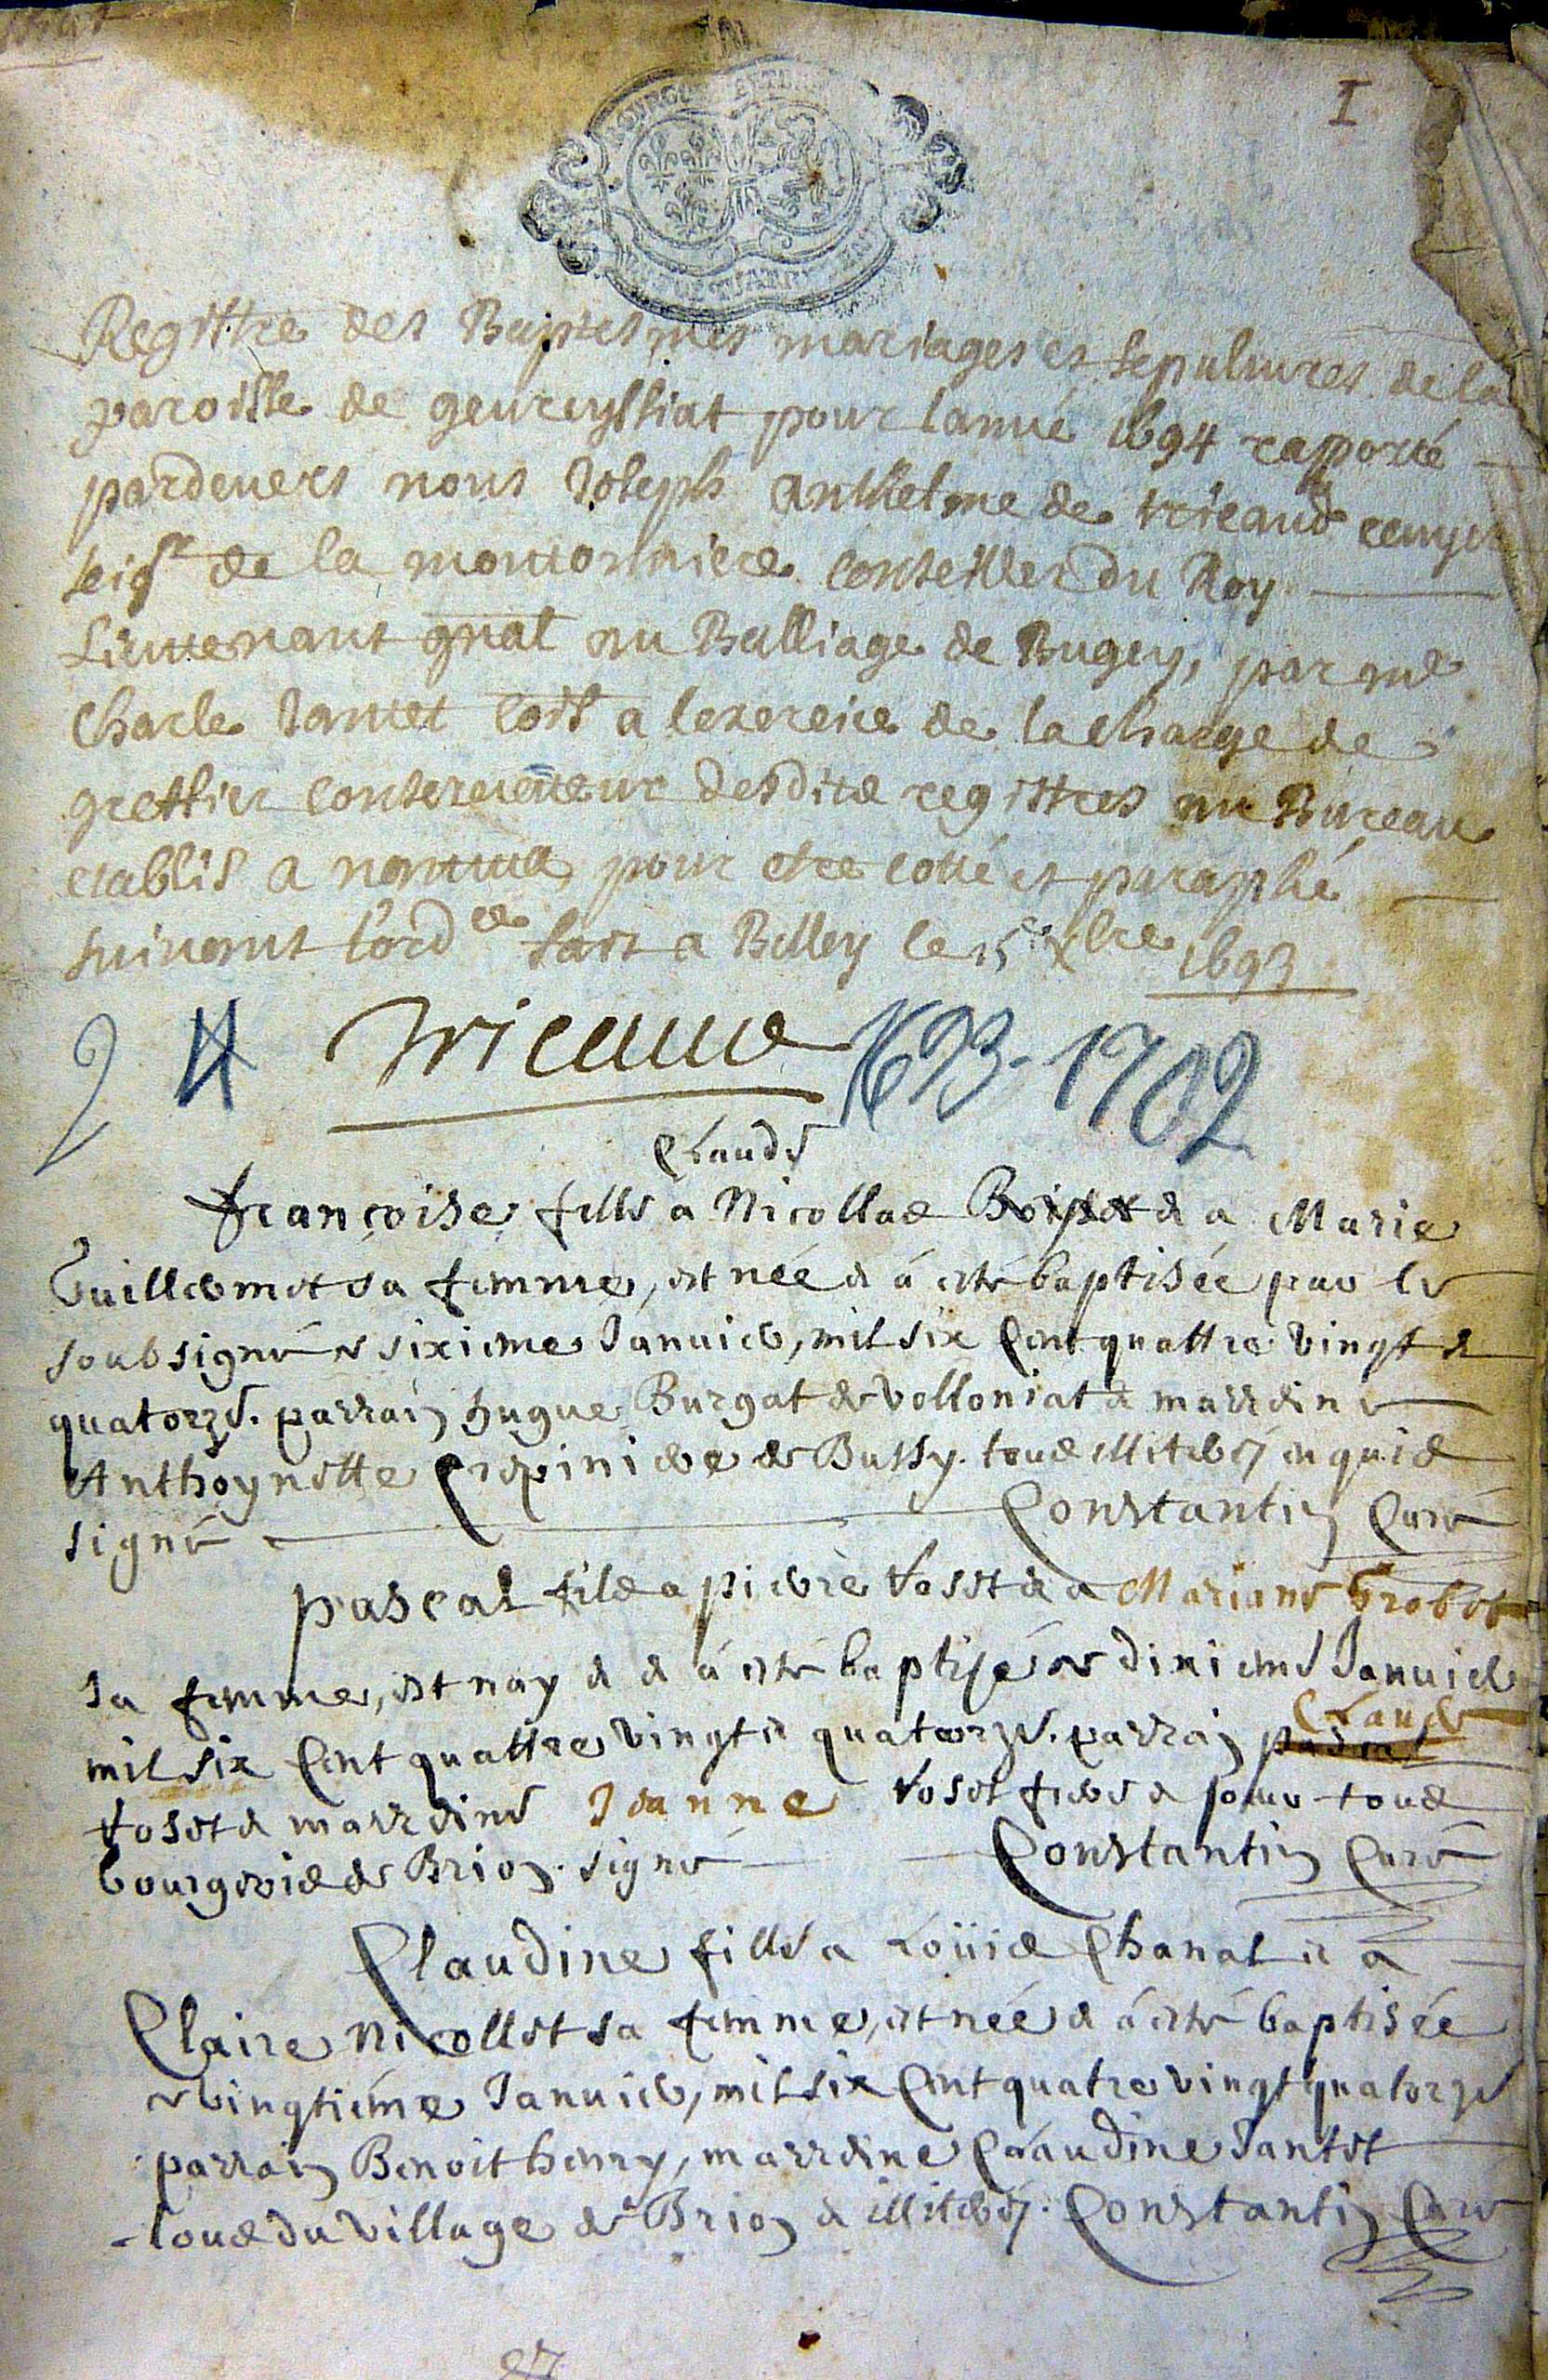 I
Registre des Baptesmes mariages et sepultures de la
paroisse de geurcyssiat pour lannée 1694 rapporté
pardevers nous Joseph Anthelme de tricaud
seigr de la conseiller du Roy
Lieutenant gnal au Balliage de Bugey, par me
Charle Jantet cois a lexercice de la charge de
greffier conservateur desdits registres au Bureau
etablis a nantua pour etre cotté et paraphé
suivant l'ordce fait a Belley le 15e Xbre 1693
Tricaud 1693-1702
Claude
francoise fille a Nicollas & a Marie
Guillermet sa femme, est née & á esté baptisée par le
soubsigné ce sixieme Januier, mil six Cent quattre vingt &
quatorze. parrain hugue Burgat de volloniat & marreine
Anthoynette de Bussy. tous illiterés enquis
signé Constantin Curé
pascal fils a pierre tosset & a Mariane Grobet
sa femme, est nay & & á esté baptisé ce dixieme Januier
mil six Cent quattre vingt & quatorze. parrain pascal Claude
tosset & marreine Jeanne toset frere & soeur tous
bourgeois de Brion. signé Constantin Curé
Claudine fille a Loüis Chanal & a
Claire Nicollet sa femme, est née & á esté baptisée
ce vingtiéme Januier, mil six Cent quatre vingt quatorze
parrain Benoit henry, marreine Claudine Jantet
tous du village de Brion & illiterés. Constantin Curé